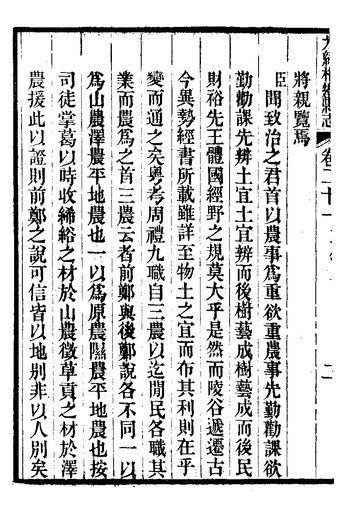 卷二十一
二
將親覽焉
臣聞致治之君首以農事爲重欲重農事先勤勸課欲
勤勸課先辨土宜土宜辨而後樹藝成樹藝成而後民
財裕先王體國經野之規莫大乎是然而陵谷遞遷古
今異勢經書所載雖詳至物土之宜而布其利則在乎
變而通之矣粵考周禮九職自三農以迄閒民各職其
業而農爲之首三農云者前鄭與後鄭說各不同一以
爲山農澤農平地農也一以爲原農隰農平地農也按
司徒掌葛以時收絺綌之材於山農徵草貢之材於澤
農援此以證則前鄭之說可信皆以地别非以人别矣